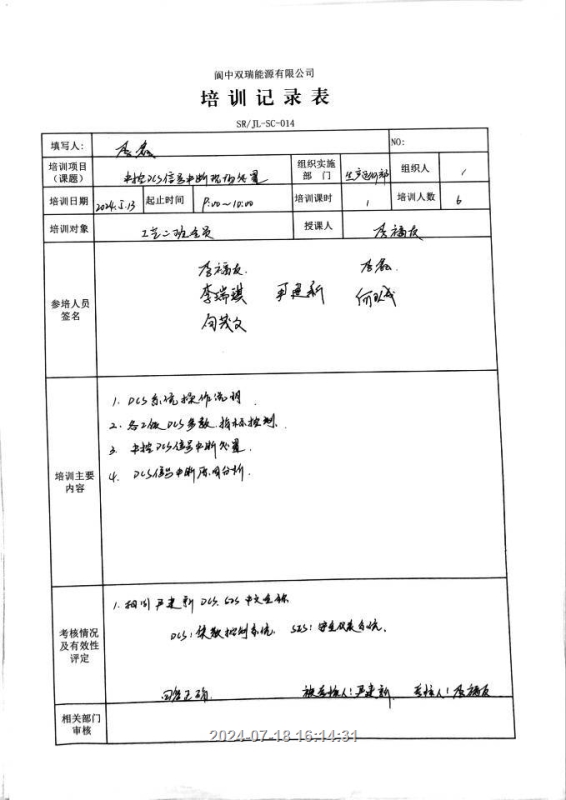 阆中双瑞能源有限公司
培训记录表
SR/JL-SC-014
填写人: 李磊 NO:
培训项目(课题) 中控DCS信号中断现场处置 组织实施部门 生产运行部 组织人 /
培训日期 2024.5.13 起止时间 9:00~10:00 培训课时 1 培训人数 6
培训对象 工艺二班全员 授课人 李福友
参培人员签名
李福友 李磊
李瑞骐 严建新 何
向茂文
培训主要内容
1. DCS系统操作说明.
2. 各工段DCS参数.指标控制.
3. 中控DCS信号中断处置.
4. DCS信号中断原因分析.
考核情况及有效性评定
1. 抽问严建新 DCS. SIS 中文全称
DCS: 集散控制系统. SIS: 安全仪表系统.
回答正确 被考核人: 严建新 考核人: 李福友
相关部门审核
2024-07-18 16:14:31